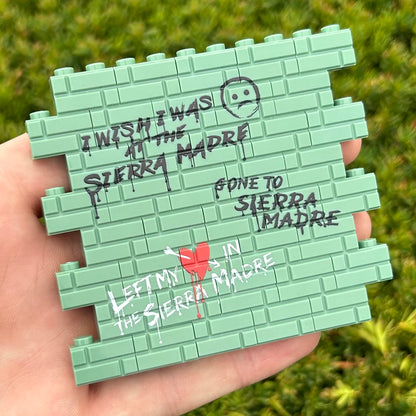 I WISH I WAS
AT THE
SIERRA MADRE
GONE TO
SIERRA
MADRE
LEFT MY IN
THE SIERRA MADRE